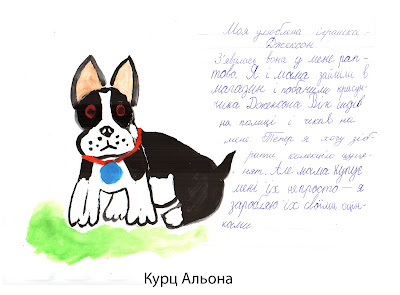 Моя улюблена іграшка -
Джексон
З'явилась вона у мене рап-
тово. Я і мама зайшли в
магазин і побачили красун-
чика Джексона. Він сидів
на полиці і чекав на
мене. Тепер я хочу зіб-
рати колекцію цуце-
нят. Але мама купує
мені їх непросто - я
заробляю їх своїми оцін-
ками.
Курц Альона